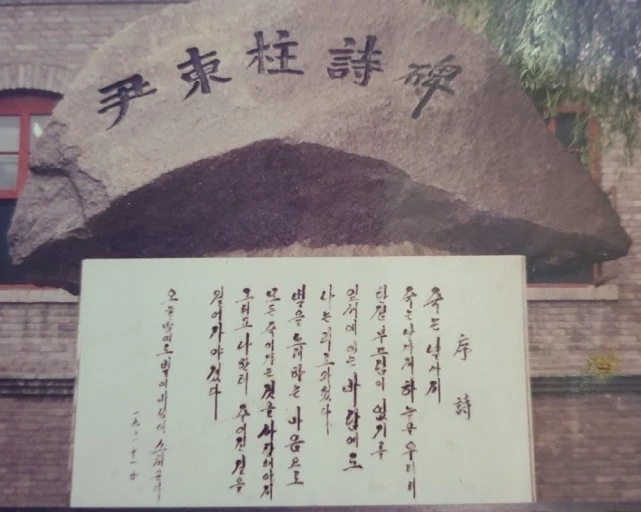 尹東柱詩碑
序詩
죽는 날까지
죽는 날까지 하늘을 우러러
한점 부끄럼이 없기를
잎새에 이는 바람에도
나는 괴로와했다
별을 노래하는 마음으로
모든 죽어가는 것을 사랑해야지
그리고 나한테 주어진 길을
걸어가야겠다
오늘밤에도 별이 바람에 스치운다